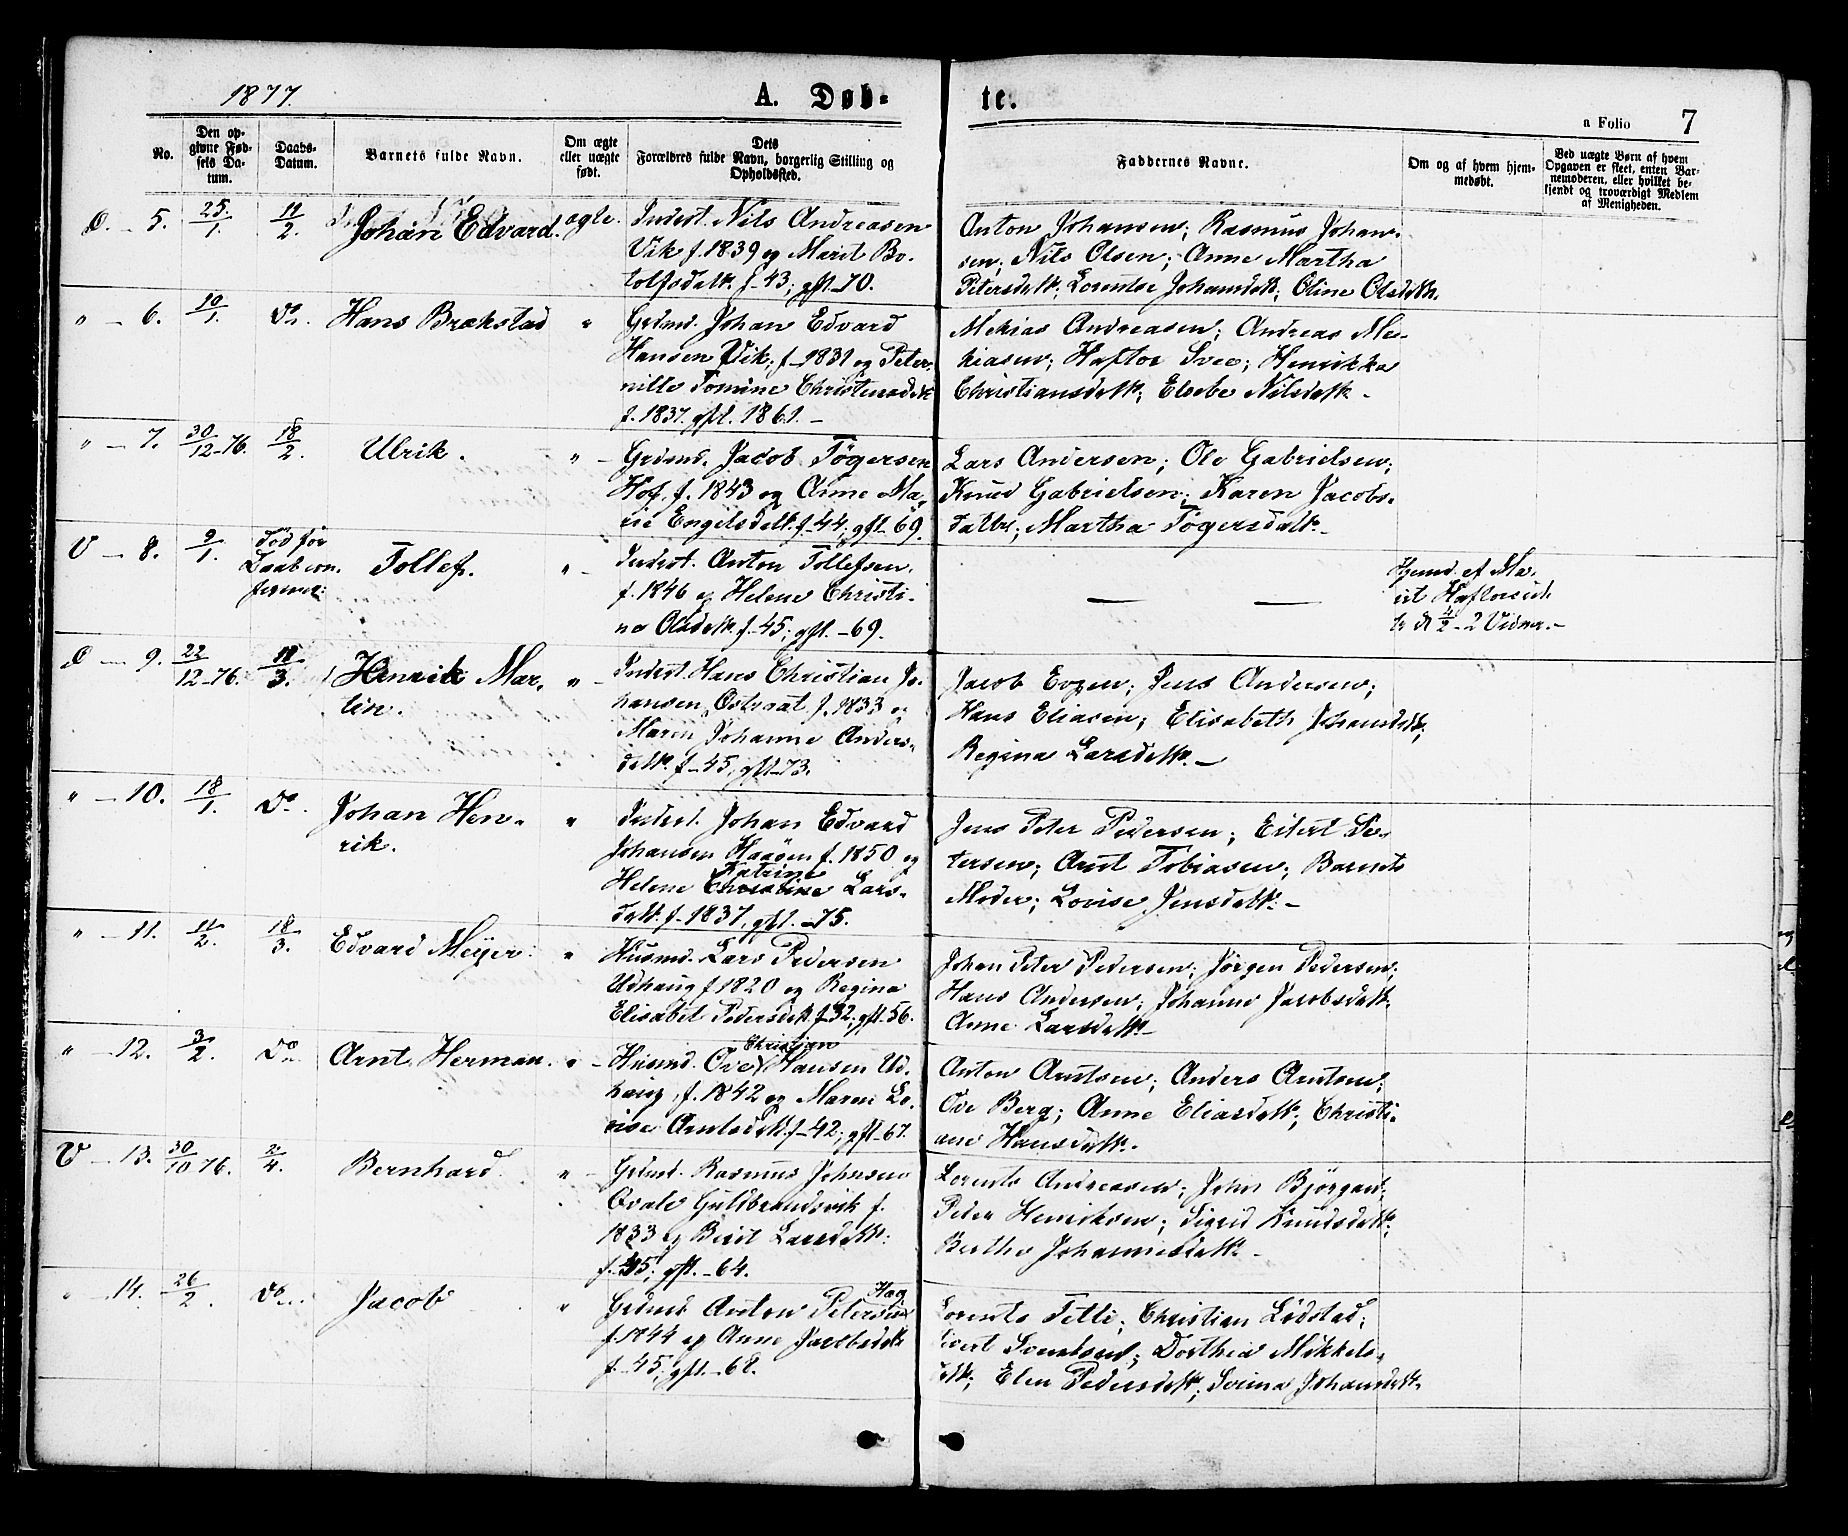 1877.
A. Døb-
te.
a Folio 7
No.
Den op-
givne Fød-
sels Da-
tum.
Daabs-
Datum.
Barnets fulde Navn.
Om ægte
eller uægte
født.
Dets
Forældres fulde Navn, borgerlig Stilling og
Opholdssted.
Faddernes Navne.
Om og af hvem hjem-
medøbt.
Ved uægte Børn af hvem
Opgaven er skeet, enten Bar-
nemoderen, eller hvilket be-
kjendt og troværdigt Medlem
af Menigheden.
5. 25/1. 11/2. Johan Edvard. ægte. Inderst. Nils Andreasen
Vik f. 1839 og Marit Bo-
tolfsdatt. f. 43; gft. 70.
Anton Johansen; Rasmus Johan-
sen; Nils Olsen; Anne Martha
Petersdatt; Lorentse Johansdatt; Oline Olsdatt.
" 6. 10/1. Do. Hans Brækstad " Grdmd. Johan Edvard
Hansen Vik, f. 1831 og Peter-
nille Tomine Christensdatt
f. 1837. gft. 1861. -
Mekias Andreasen; Andreas Me-
kiasen; Haftor Svee; Henrikka
Christiansdatt; Elsebe Nilsdatt -
" 7. 30/12-76. 18/2. Ulrik. " Grdmd. Jacob Tøgersen
Hof, f. 1843 og Anne Ma-
rie Engelsdatt. f. 44; gft. 69.
Lars Andersen; Ole Gabrielsen;
Knud Gabrielsen; Karen Jacobs-
datter; Martha Tøgersdatt. -
V - 8. 9/1. Død før
Daab con-
firmer: Tollef. " Inderst. Anton Tollefsen.
f. 1846 og Helene Christi-
ne Olsdatt. f. 45; gft. - 69.
Hjemd. af Ma-
rit Haftorsd.
4/2 - 2 Vidner. -
9. 22/12-76. 18/3. Henrik Mar-
tin. " Inderst. Hans Christian Jo-
hansen Østraat f. 1833 og
Maren Johanne Anders-
datt. f. 45, gft. 73.
Jacob Evgen; Jens Andersen;
Hans Eliasen; Elisabeth Johansdatt;
Regina Larsdatt. -
" 10. 18/1. Do. Johan Hen-
rik. " Inderst. Johan Edvard
Johansen f. 1850 og
Katrine
Helene Christine Lars-
datt. f. 1837, gft. - 75.
Jens Peter Pedersen; Eilert Pe-
tersen; Arnt Tobiasen; Barnets
Moder; Lovise Jensdatt. -
" 11. 11/2. 18/3. Edvard Meyer. " Husmd. Lars Pedersen
Udhaug f 1820 og Regina
Elisabet Pedersdatt. f. 32; gft. 56.
Johan Peter Pedersen; Jørgen Pedersen;
Hans Andersen; Johanne Jacobsdatt.
Anne Larsdatt. -
" 12. 3/2. Do. Arnt Herman. " Christian
Husmd. Ove Hansen Ud-
haug, f. 1842 og Maren Lo-
vise Arntsdatt. f. 42; gft. 67.
Anton Arntsen; Anders Arntsen;
Ove Berg; Anne Eliasdatt; Christi-
ane Hansdatt.
V - 13. 30/10-76. 2/4. Bernhard. " Grdmd. Rasmus Johnsen
Ovale Guldbrandsvik f.
1833 og Berit Larsdatt.
f. 35, gft. - 64.
Lorents Andreasen; John Bjørgan;
Peder Henriksen; Sigrid Knudsdatt;
Berthe Johannesdatt. -
" 14. 26/2. Do. Jacob " Hag
Grdmd. Anton Petersen
f. 1844 og Anne Jacobsdatt
f. 45; gft. - 68.
Lorents Tetli; Christian Lødstad;
Sivert Sventsen; Dorthea Mikkels-
datt; Elen Pedersdatt; Serina Johansdatt.